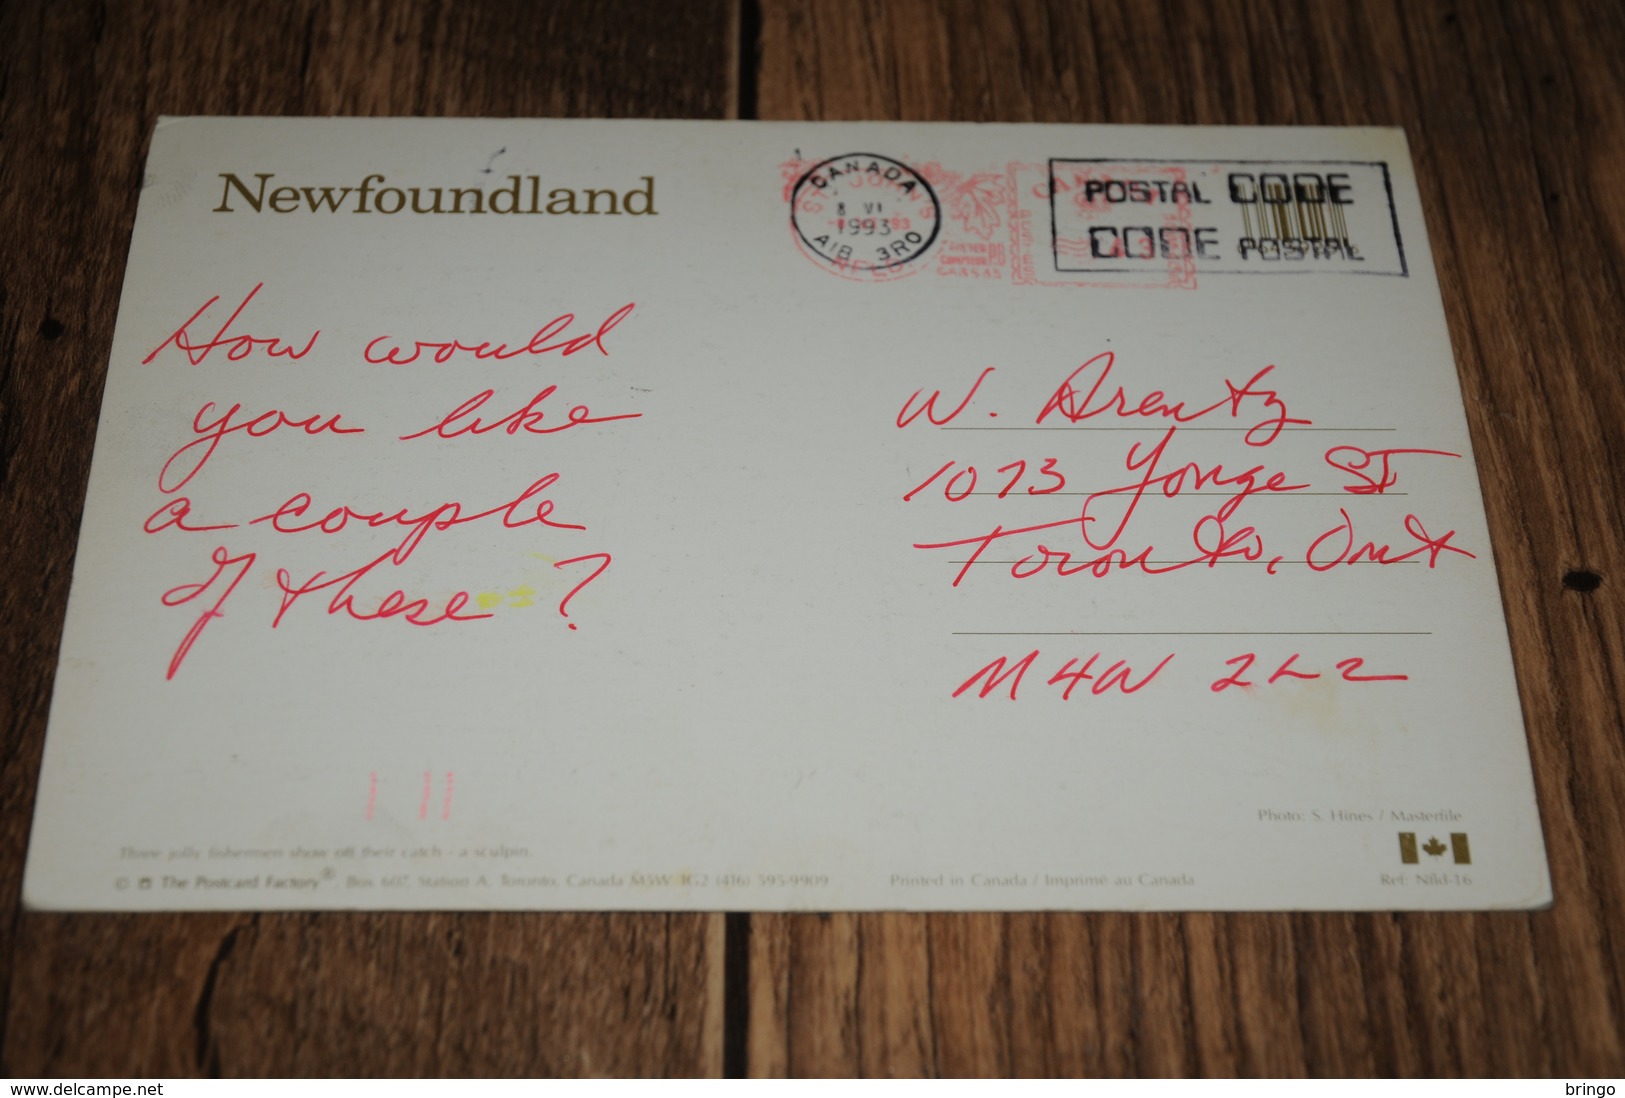 Newfoundland
CANADA
8 VI
1993
A1B 3R0
ST. JOHN'S
NFLD
POSTAL CODE
CODE POSTAL
How would
you like
a couple
of these ?
W. Arentz
1073 Yonge ST
Toronto, Ont
M4W 2L2
Photo: S. Hines / Masterfile
Three jolly fishermen show off their catch - a sculpin.
© The Postcard Factory® Box 607, Station A, Toronto, Canada M5W 1G2 (416) 595-9909
Printed in Canada / Imprimé au Canada
Ref: Nfld-16
www.delcampe.net
bringo